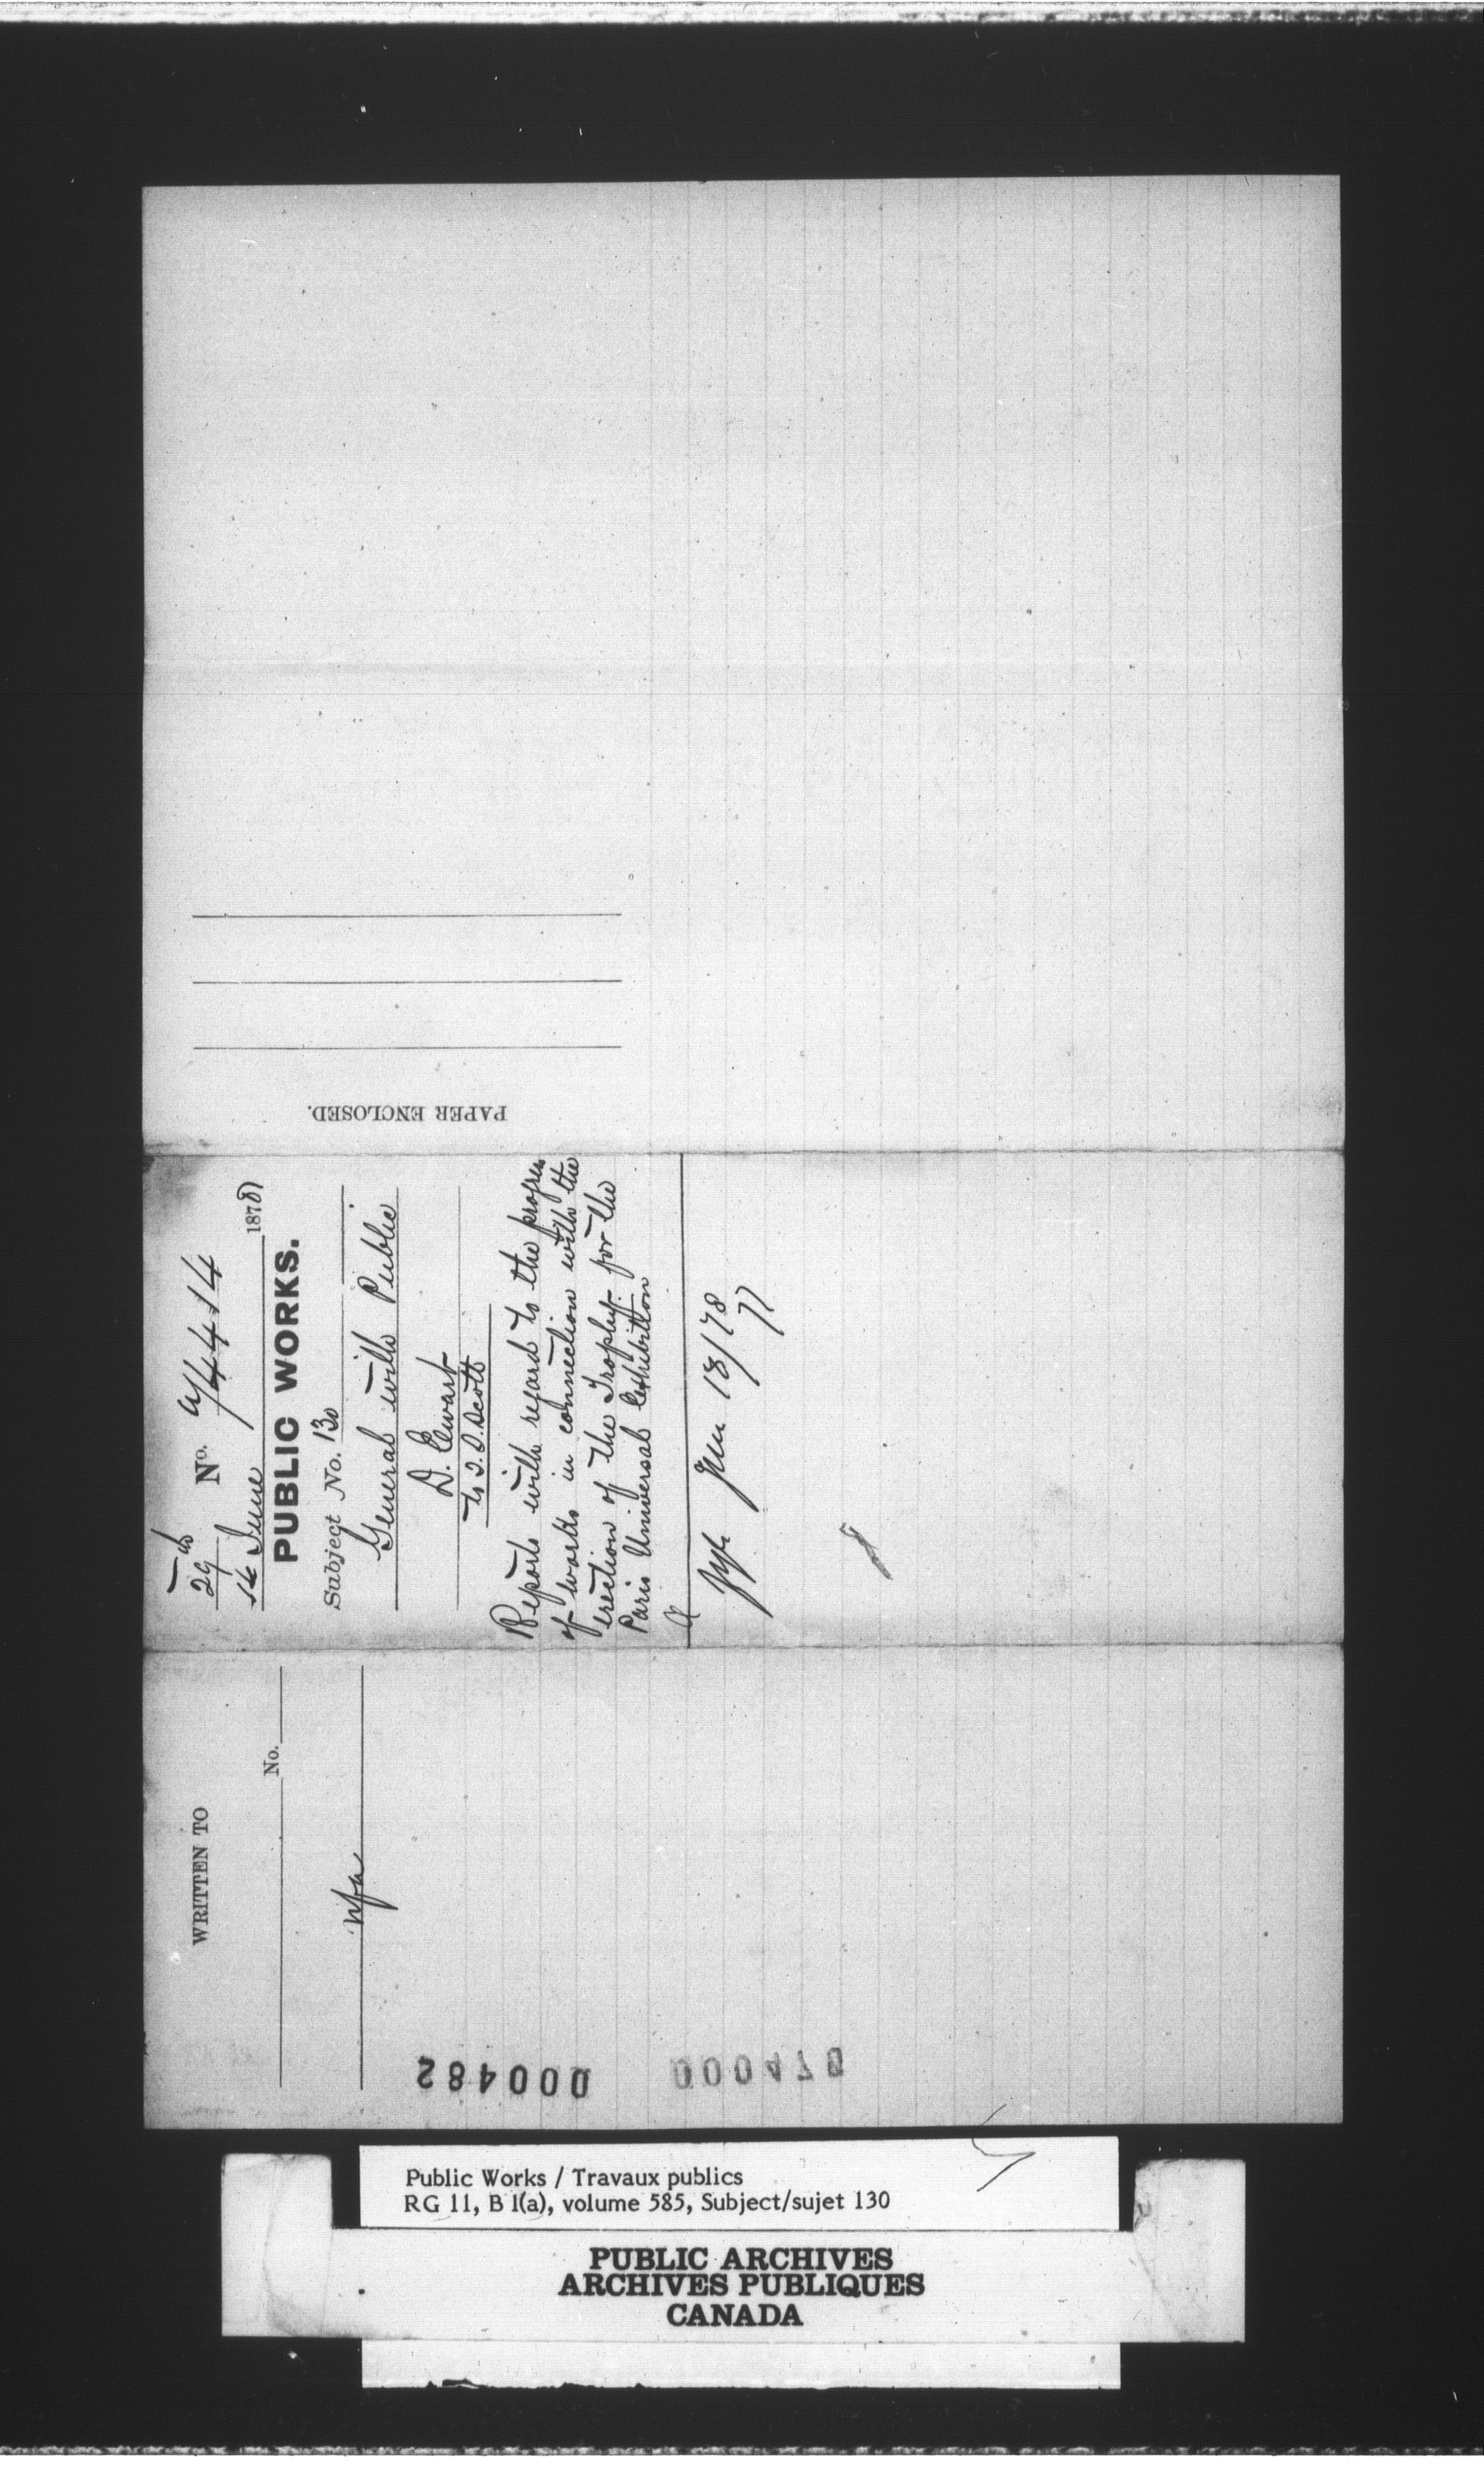 PAPER ENCLOSED.
29
No. a/4414
14 June 1878
PUBLIC WORKS.
Subject No. 130
General with Public
D. Ewart
to T. S. Scott
Reports with regard to the progress
of works in connection with the
erection of the Trophy for the
Paris Universal Exhibition
Jun 18/78
WRITTEN TO
No.
nfa
000482
Public Works / Travaux publics
RG 11, B 1(a), volume 585, Subject/sujet 130
PUBLIC ARCHIVES
ARCHIVES PUBLIQUES
CANADA